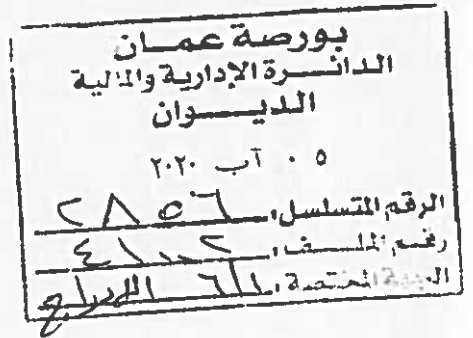 بورصة عمان
الدائرة الإدارية والمالية
الديوان
٠٥ آب ٢٠٢٠
الرقم المتسلسل: ٢٨٥٦
رقم الملف:
الجهة المختصة: الإدراج